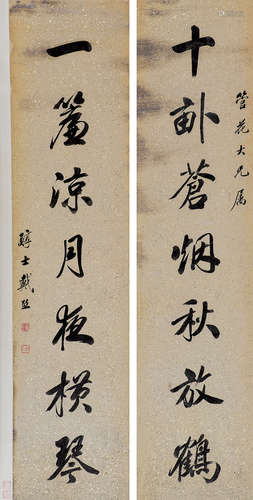 管花大兄属
十畝蒼烟秋放鶴
一簾涼月夜橫琴
醇士戴熙